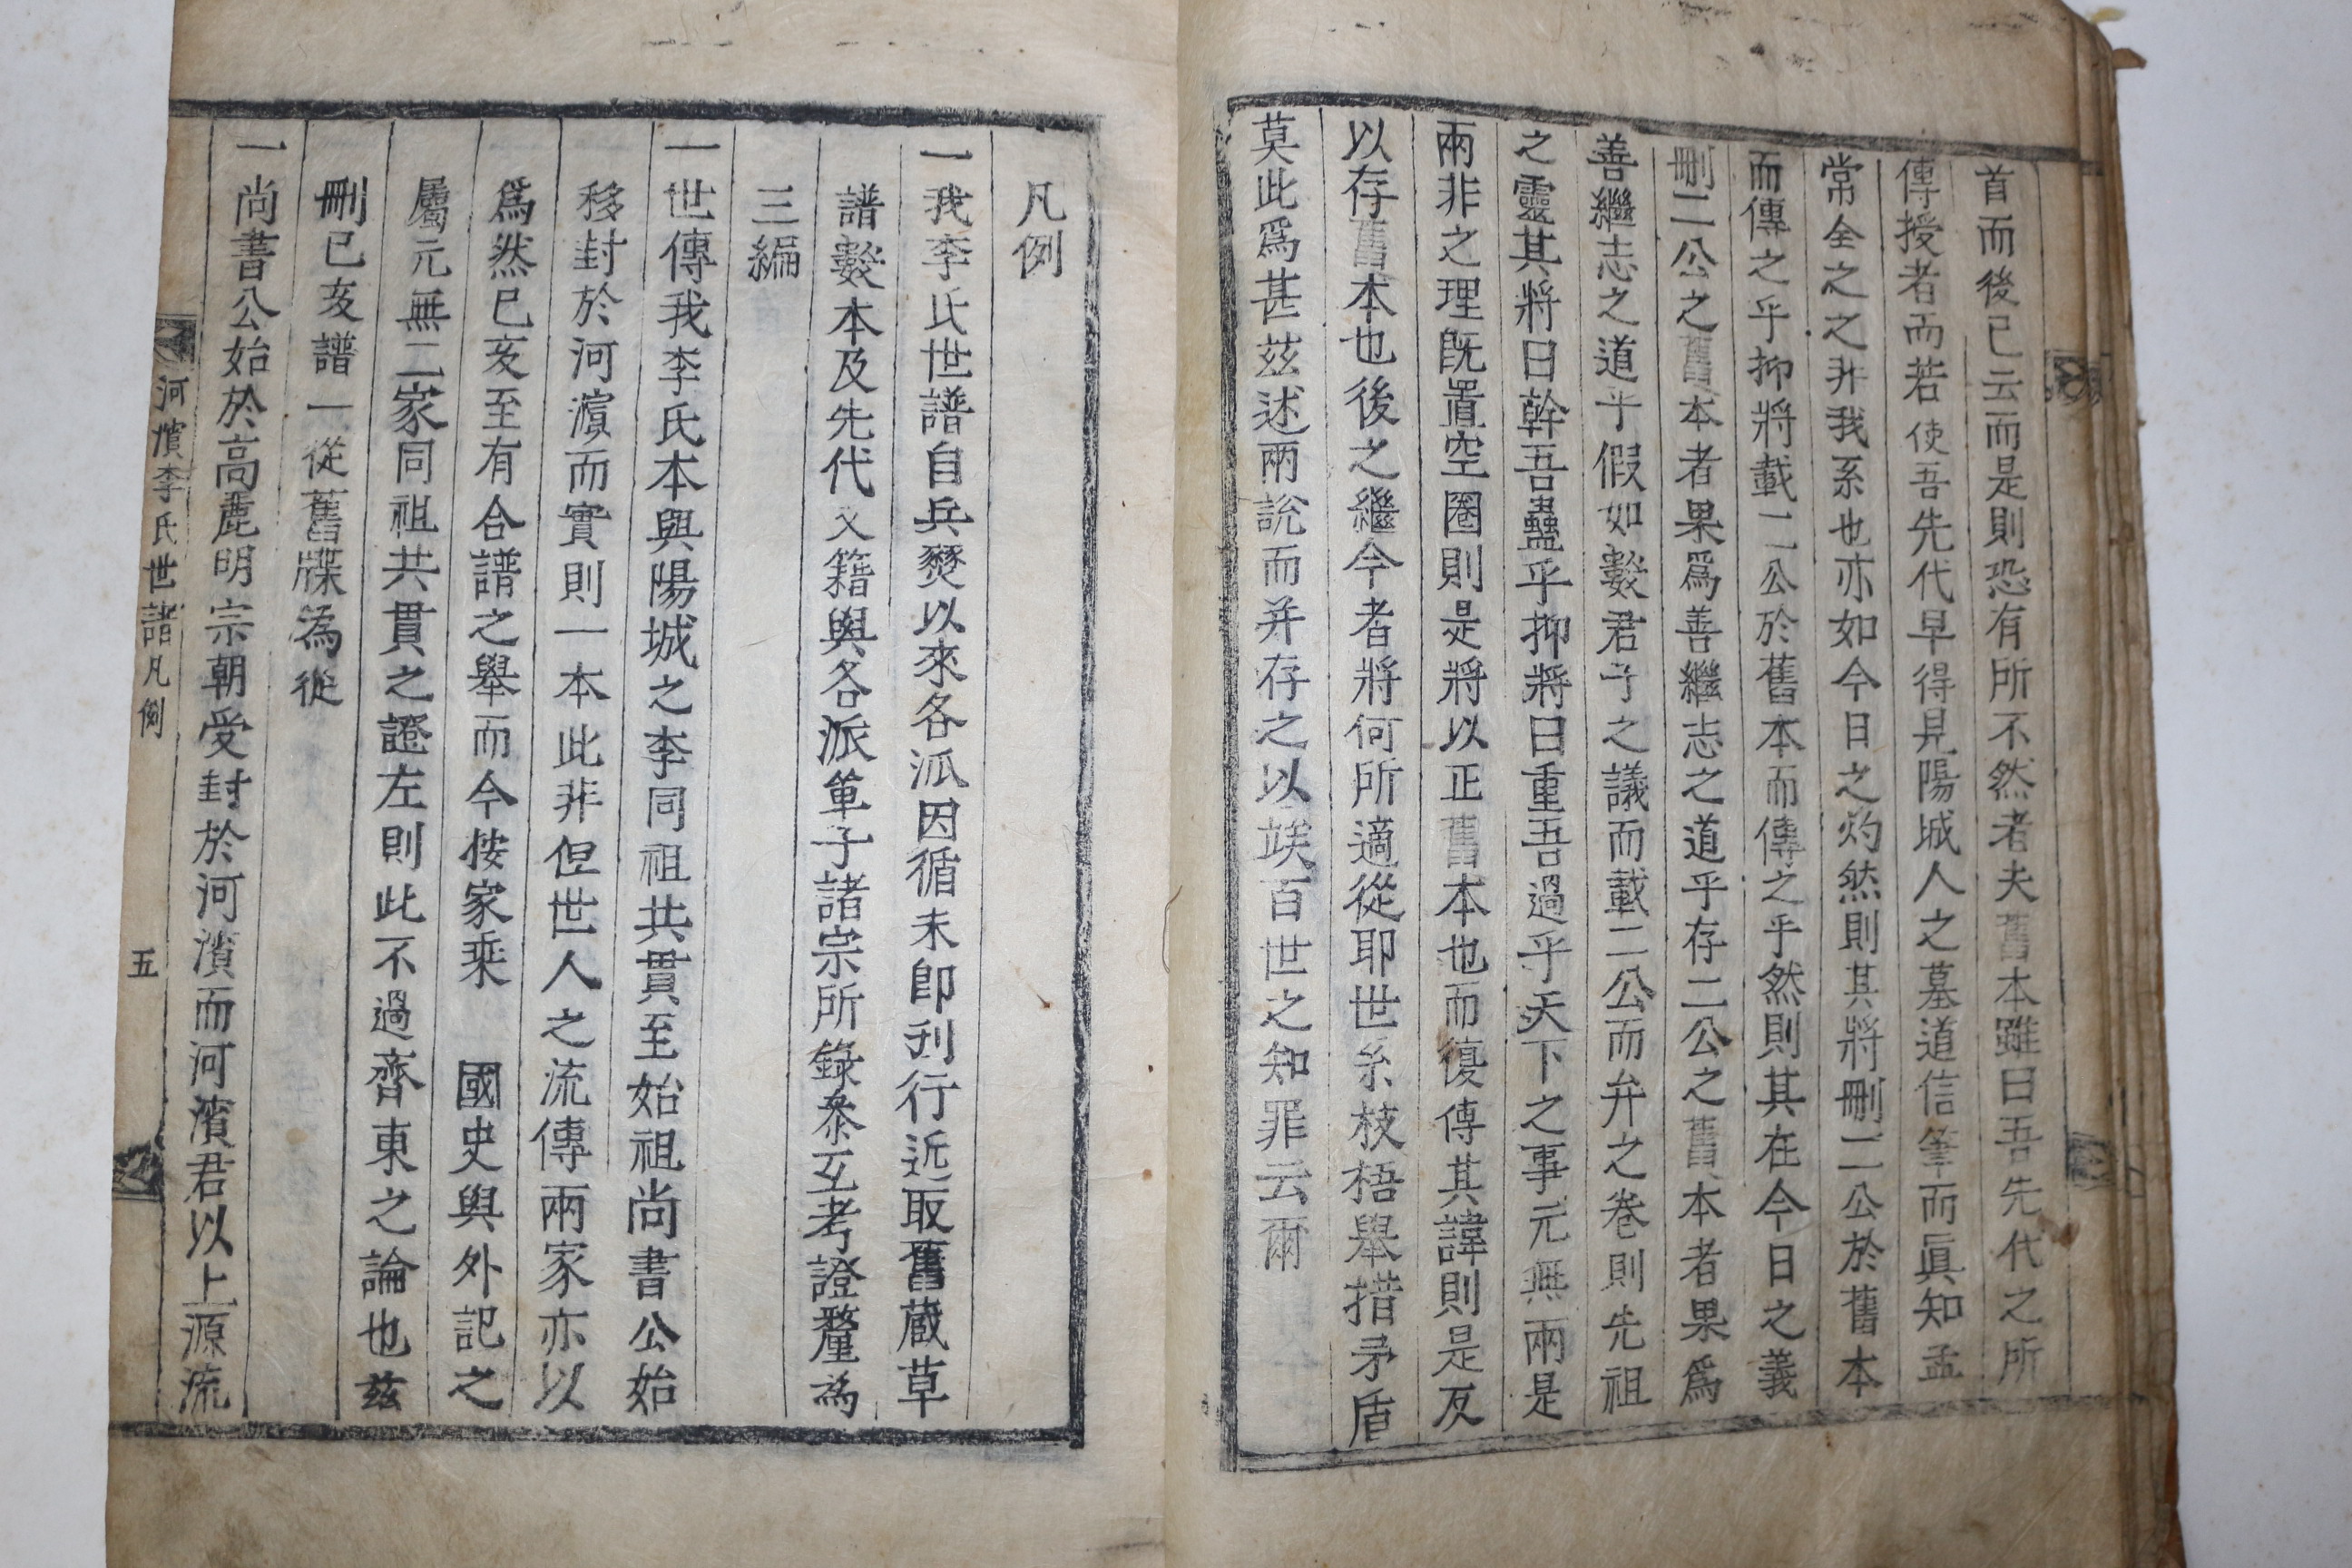 首而後已云而是則恐有所不然者夫舊本雖曰吾先代之所
傳授者而若使吾先代早得見陽城人之墓道信筆而眞知孟
常全之之非我系也亦如今日之灼然則其將刪二公於舊本
而傳之乎抑將載二公於舊本而傳之乎然則其在今日之義
刪二公之舊本者果爲善繼志之道乎存二公之舊本者果爲
善繼志之道乎假如數君子之議而載二公而弁之卷則先祖
之靈其將曰幹吾蠱乎抑將曰重吾過乎天下之事元無兩是
兩非之理旣置空圈則是將以正舊本也而復傳其諱則是反
以存舊本也後之繼今者將何所適從耶世系枝梧舉措矛盾
莫此爲甚玆述兩說而并存之以竢百世之知罪云爾
凡例
一我李氏世譜自兵燹以來各派因循未卽刋行近取舊藏草
譜數本及先代文籍與各派單子諸宗所錄叅互考證釐爲
三編
一世傳我李氏本與陽城之李同祖共貫至始祖尚書公始
移封於河濱而實則一本此非但世人之流傳兩家亦以
爲然已亥至有合譜之舉而今按家乘 國史與外記之
屬元無二家同祖共貫之證左則此不過齊東之論也玆
刪已亥譜一從舊牒為從
一尚書公始於高麗明宗朝受封於河濱而河濱君以上源流
河濱李氏世譜凡例 五